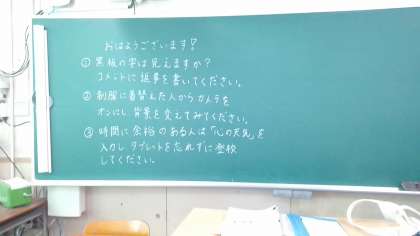 おはようございます!
① 黒板の字は見えますか?
コメントに返事を書いてください。
② 制服に着替えた人からカメラを
オンにし、背景を変えてみてください。
③ 時間に余裕のある人は「心の天気」を
入力し、タブレットを忘れずに登校
してください。